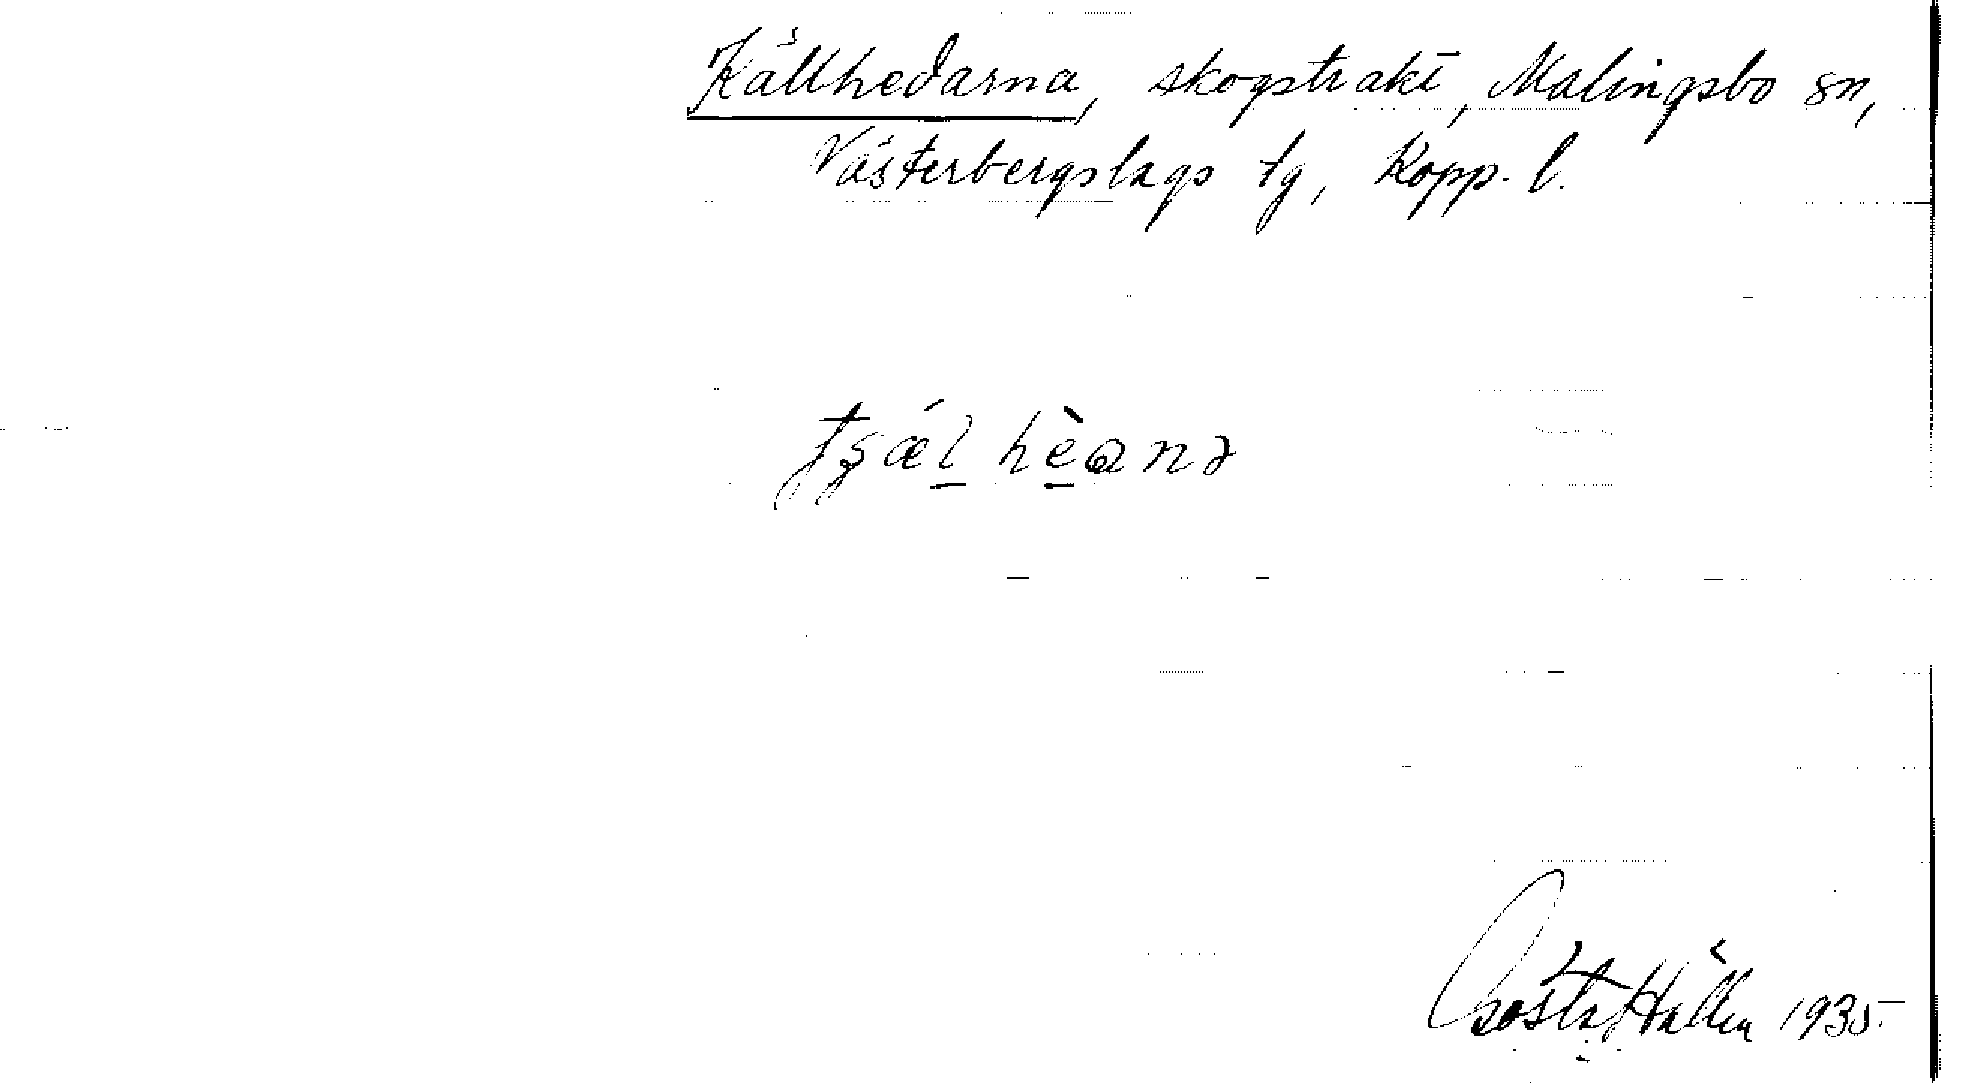 Källhedarna, skogstrakt, Malingsbo sn,
Västerbergslags tg, Kopp. l.
tʂǽl hèɑnə
Gösta Hållén 1935.